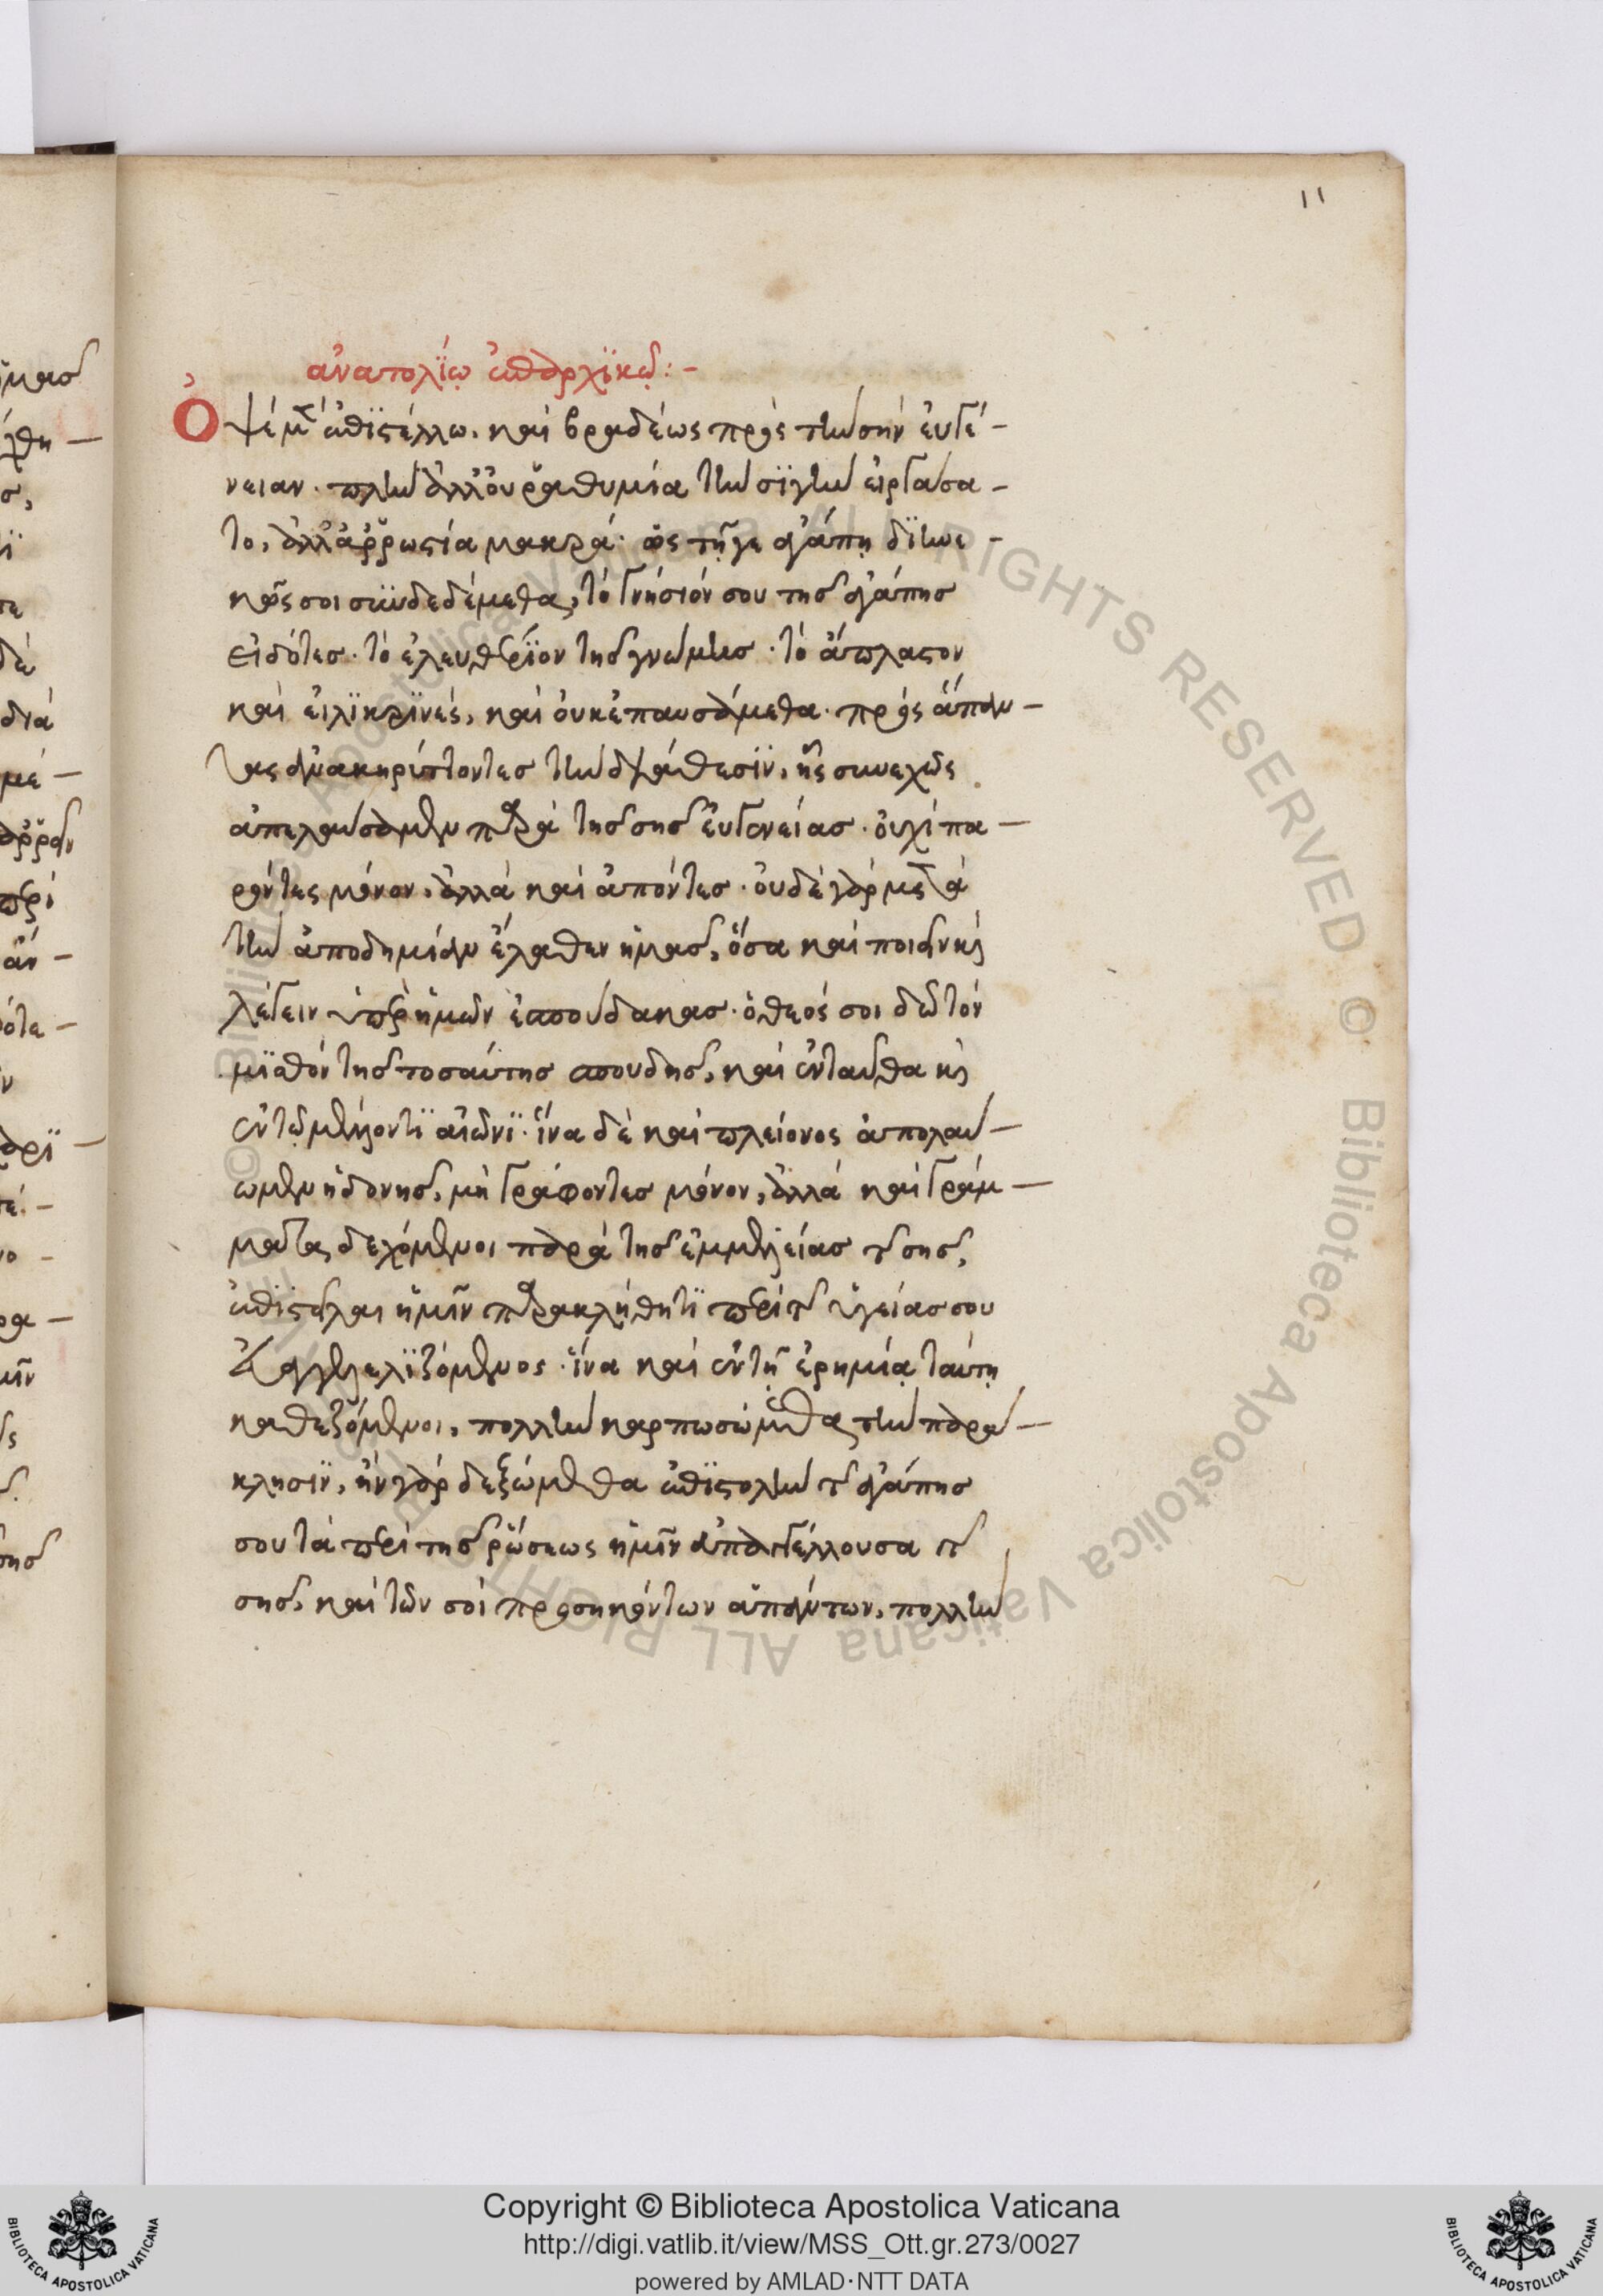 11
ἀνατολΐῳ ἐπαρχϊκῷ:-
Ὀψὲ μὲν ἐπϊστέλλω. καὶ βραδέως πρὸς τὴν σὴν εὐγέ-
νειαν. πλὴν ἀλλ' οὐ ῥαθυμία τὴν σϊγὴν εἰργάσα-
το, ἀλλ' ἀῤῥωστία μακρά. ὡς τῆ γε ἀγάπη δϊηνε-
κῶς σοι συνδεδέμεθα, τὸ γνήσιόν σου τῆς ἀγάπης
εἰδότες. τὸ ἐλευθέρϊον τῆς γνώμης. τὸ ἄπλαστον
καὶ εἰλϊκρϊνές, καὶ οὐκ ἐπαυσάμεθα. πρὸς ἅπαν-
τας ἀνακηρύττοντες τὴν διάθεσϊν, ἧς συνεχῶς
ἀπελαύσαμεν παρὰ τῆς σῆς εὐγενείας. οὐχὶ πα-
ρόντες μόνον, ἀλλὰ καὶ ἀπόντες. οὐδὲ γὰρ μετὰ
τὴν ἀποδημίαν ἔλαθεν ἡμᾶς, ὅσα καὶ ποιεῖν καὶ
λέγειν ὑπὲρ ἡμῶν ἐσπούδακας. ὁ θεός σοι δῶ τὸν
μϊσθὸν τῆς τοσαύτης σπουδῆς, καὶ ἐνταῦθα καὶ
ἐν τῷ μέλλοντϊ αἰῶνϊ. ἵνα δὲ καὶ πλείονος ἀπολαύ-
ωμεν ἡδονῆς, μὴ γράφοντες μόνον, ἀλλὰ καὶ γράμ-
ματα δεχόμενοι παρὰ τῆς ἐμμελείας τῆς σῆς,
ἐπϊστεῖλαι ἡμῖν παρακλήθητϊ περὶ τῆς ὑγείας σου
εὐαγγελϊζόμενος. ἵνα καὶ ἐν τῆ ἐρημίᾳ ταύτῃ
καθεζόμενοι, πολλὴν καρπωσώμεθα τὴν παρά-
κλησϊν, ἢν γὰρ δεξώμεθα ἐπϊστολὴν τῆς ἀγάπης
σου τὰ περὶ τῆς ῥώσεως ἡμῖν ἀπαγγέλλουσα τῆς
σῆς, καὶ τῶν σοὶ προσηκόντων ἁπάντων, πολλὴν
Copyright © Biblioteca Apostolica Vaticana
http://digi.vatlib.it/view/MSS_Ott.gr.273/0027
powered by AMLAD·NTT DATA